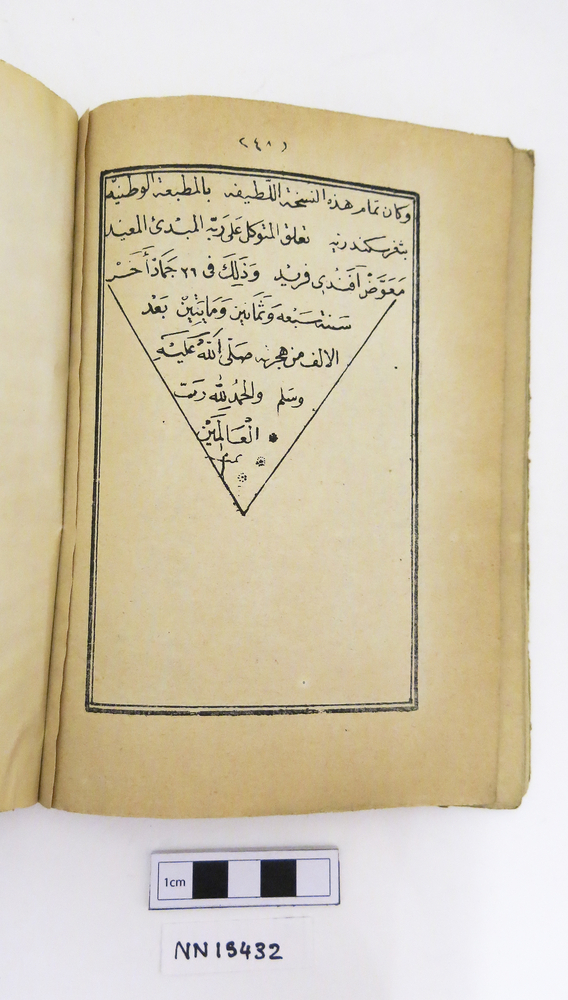 (٢٤٨)
وكان تمام هذه النسخة اللطيفه بالمطبعة الوطنيه
بثغر سكندريه تعلق المتوكل على ربه المبدئ المعيد
معوض أفندي فريد وذلك فى ٢٦ جماد أخر
سنة سبعه وثمانين ومايتين بعد
الالف من هجرته صلى الله عليه
وسلم والحمد لله رب
العالمين
1cm
NN15432